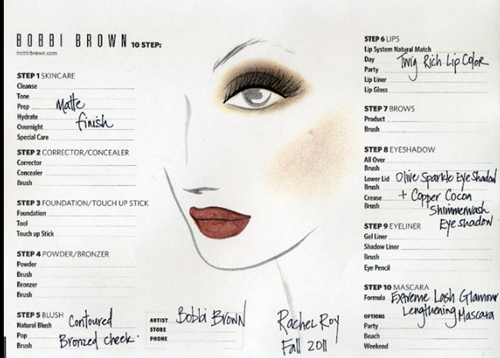 BOBBI BROWN 10 STEP:
bobbibrown.com
STEP 1 SKINCARE
Cleanse
Tone
Prep
Hydrate
Overnight
Special Care
Matte
finish
STEP 2 CORRECTOR/CONCEALER
Corrector
Concealer
Brush
STEP 3 FOUNDATION/TOUCH UP STICK
Foundation
Tool
Touch up Stick
STEP 4 POWDER/BRONZER
Powder
Brush
Bronzer
Brush
STEP 5 BLUSH
Natural Blush
Pop
Brush
Contoured
Bronzed cheek.
ARTIST Bobbi Brown
STORE
PHONE
Rachel Roy
Fall 2011
STEP 6 LIPS
Lip System Natural Match
Day
Party
Lip Liner
Lip Gloss
Twig Rich Lip Color
STEP 7 BROWS
Product
Brush
STEP 8 EYESHADOW
All Over
Brush
Lower Lid Olive Sparkle Eye Shadow
Brush
Crease + Copper Cocoa
Brush Shimmerwash
Eye shadow
STEP 9 EYELINER
Gel Liner
Shadow Liner
Brush
Eye Pencil
STEP 10 MASCARA
Formula Extreme Lash Glamour
Lengthening Mascara
OPTIONS
Party
Beach
Weekend